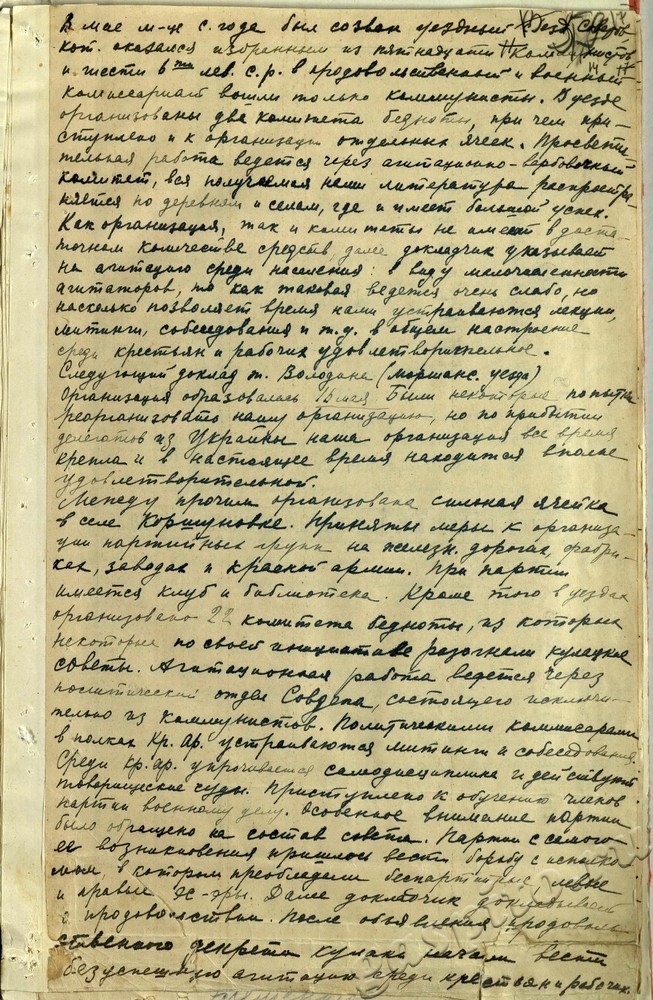 В мае м-це с. года был созван уездный съезд советов
кот. оказался избранным из пятнадцати коммунистов
и шести лев. с.р. в продовольственный и военный
комиссариат вошли только коммунисты. В уезде
организованы два комитета бедноты, при чем при-
ступлено и к организации отдельных ячеек. Просвети-
тельная работа ведется через агитационно-вербовочный
комитет, вся получаемая нами литература распростра-
няется по деревням и селам, где и имеет большой успех.
Как организация, так и комитеты не имеют в доста-
точном количестве средств, далее докладчик указывает
на агитацию среди населения: в виду малочисленности
агитаторов, то как таковая ведется очень слабо, но
насколько позволяет время нами устраиваются лекции,
митинги, собеседования и т.д. в общем настроение
среди крестьян и рабочих удовлетворительное.
Следующий доклад т. Володина (моршанс. уезда)
Организация образовалась мая Были некоторые попытки
реорганизовать нашу организацию, но по прибытии
делегатов из Украины наша организация все время
крепла и в настоящее время находится вполне
удовлетворительной.
Между прочим организована сильная ячейка
в селе Коршуновке. Приняты меры к организа-
ции партийных групп на железн. дорогах, фабри-
ках, заводах и красной армии. При партии
имеется клуб и библиотека. Кроме того в уездах
организовано 22 комитета бедноты, из которых
некоторые по своей инициативе разогнали кулацкие
советы. Агитационная работа ведется через
политический отдел Совдепа, состоящего исключи-
тельно из коммунистов. Политическими комиссарами
в полках Кр. Ар. устраиваются митинги и собеседования.
Среди кр. ар. упрочивается самодисциплина и действуют
товарищеские суды. Приступлено к обучению членов
партии военному делу. Особенное внимание партии
было обращено на состав совета. Партии с самого
ее возникновения пришлось вести борьбу с исполко-
мом, в котором преобладали беспартийные, левые
и правые Эс-эры. Далее докладчик докладывает
о продовольствии. После объявления продоволь-
ственного декрета кулаки начали вести
безуспешную агитацию среди крестьян и рабочих.